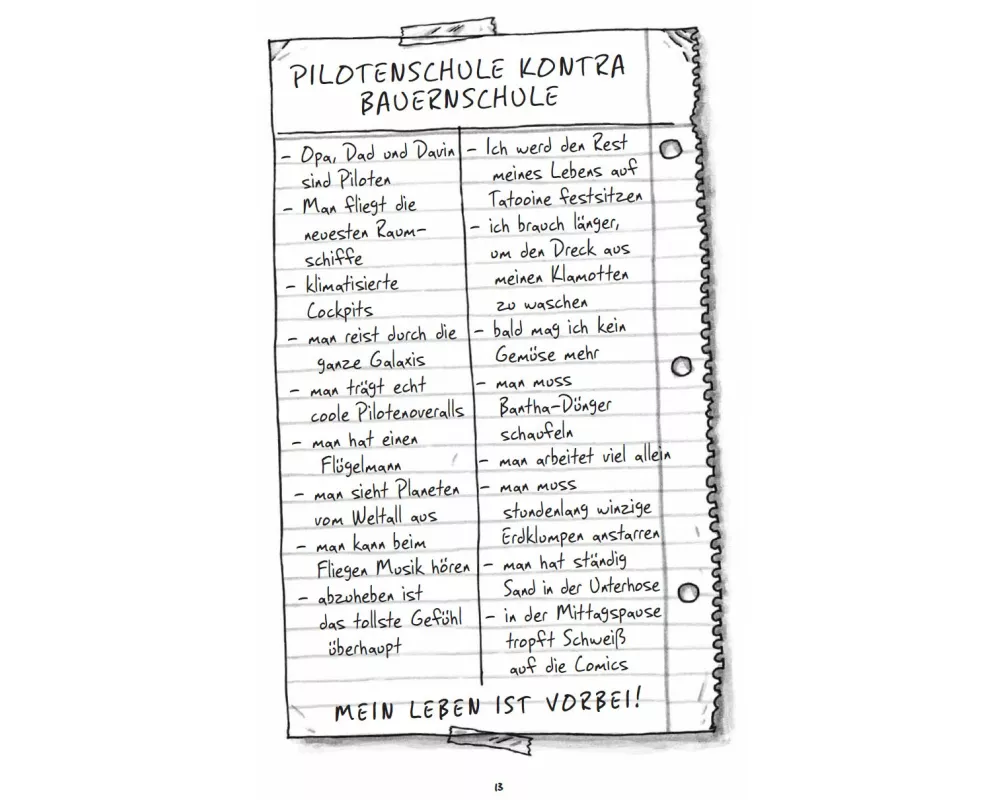 PILOTENSCHULE KONTRA
BAUERNSCHULE
- Opa, Dad und Davin
sind Piloten
- Man fliegt die
neuesten Raum-
schiffe
- klimatisierte
Cockpits
- man reist durch die
ganze Galaxis
- man trägt echt
coole Pilotenoveralls
- man hat einen
Flügelmann
- man sieht Planeten
vom Weltall aus
- man kann beim
Fliegen Musik hören
- abzuheben ist
das tollste Gefühl
überhaupt
- Ich werd den Rest
meines Lebens auf
Tatooine festsitzen
- ich brauch länger,
um den Dreck aus
meinen Klamotten
zu waschen
- bald mag ich kein
Gemüse mehr
- man muss
Bantha-Dünger
schaufeln
- man arbeitet viel allein
- man muss
stundenlang winzige
Erdklumpen anstarren
- man hat ständig
Sand in der Unterhose
- in der Mittagspause
tropft Schweiß
auf die Comics
MEIN LEBEN IST VORBEI!
13